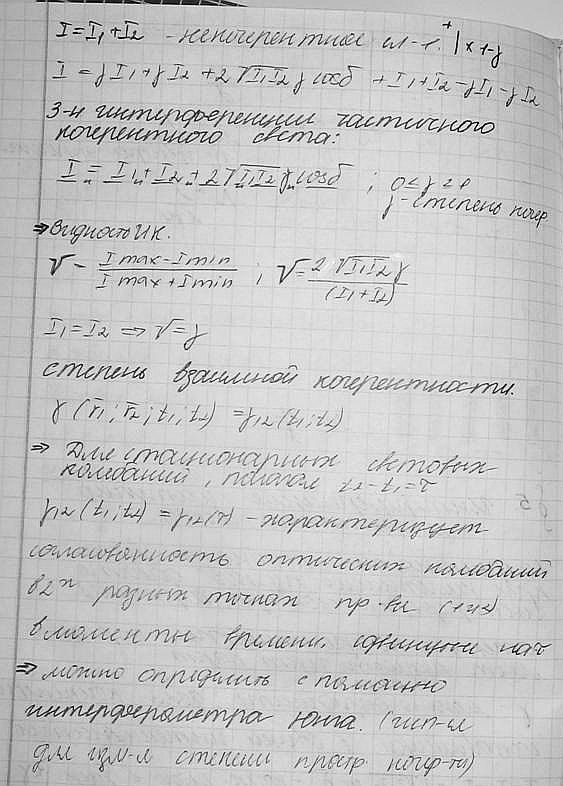 I = I₁ + I₂ - некогерентное сл-е. + | x 1-γ
I = γI₁ + γI₂ + 2√I₁I₂ γ cosδ + I₁ + I₂ - γI₁ - γI₂
З-н интерференции частичного
когерентного света:
I = I₁ + I₂ + 2√I₁I₂ γ cosδ ; 0 ≤ γ ≤ 1
γ - степень когер.
⇒ Видность ИК.
V = (Imax - Imin)/(Imax + Imin) ; V = 2√I₁I₂ γ/(I₁ + I₂)
I₁ = I₂ ⇒ V = γ
степень взаимной когерентности.
γ (r̄₁; r̄₂; t₁; t₂) = γ₁₂ (t₁; t₂)
⇒ Для стационарных световых
колебаний, полагая t₂ - t₁ = τ
γ₁₂ (t₁; t₂) = γ₁₂ (τ) - характеризует
согласованность оптических колебаний
в 2х разных точках пр-ва (1 и 2)
в моменты времени, сдвинутые на τ
⇒ можно определить с помощью
интерферометра Юнга. (исп-ся
для изм-я степени простр. когер-ти)